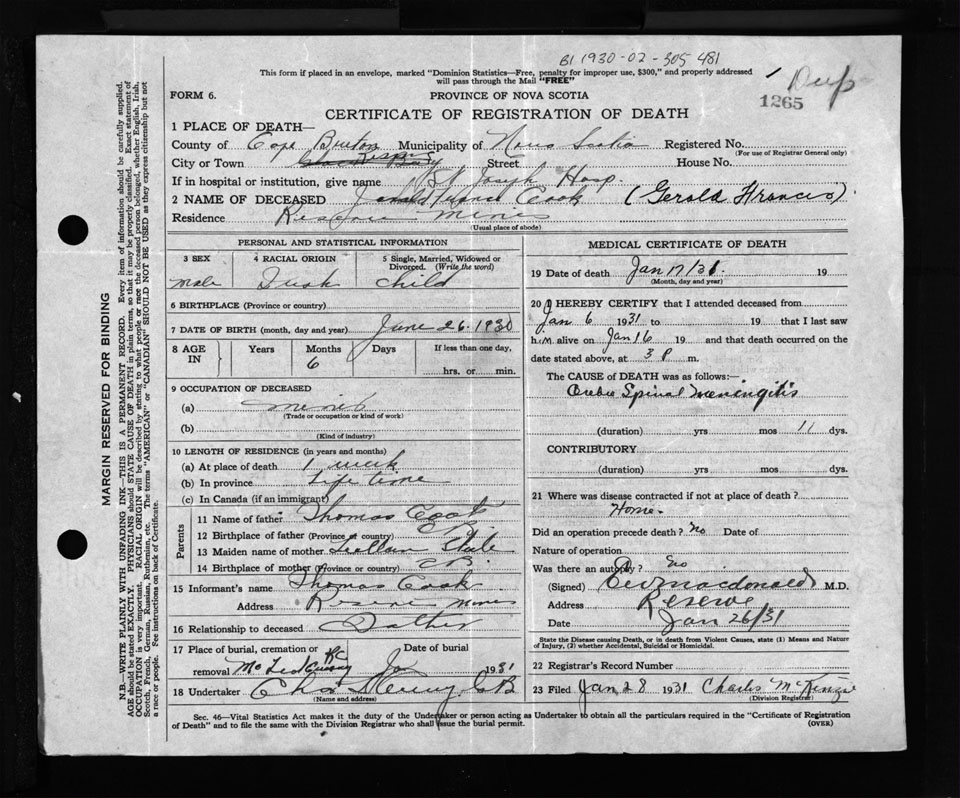 B1 1930-02-305 481
This form if placed in an envelope, marked "Dominion Statistics—Free, penalty for improper use, $300," and properly addressed
will pass through the Mail "FREE"
Dup
1265
FORM 6. PROVINCE OF NOVA SCOTIA
CERTIFICATE OF REGISTRATION OF DEATH
1 PLACE OF DEATH—
County of Cape Breton Municipality of Nova Scotia Registered No.
(For use of Registrar General only)
City or Town Bay Street House No.
If in hospital or institution, give name St. Joseph Hosp.
2 NAME OF DECEASED Francis Cook (Gerald Francis)
Residence Reserve Mines
(Usual place of abode)
PERSONAL AND STATISTICAL INFORMATION
3 SEX 4 RACIAL ORIGIN 5 Single, Married, Widowed or Divorced. (Write the word)
Male Irish Child
6 BIRTHPLACE (Province or country)
7 DATE OF BIRTH (month, day and year) June 26 1930
8 AGE IN Years Months Days If less than one day,
6 hrs. or min.
9 OCCUPATION OF DECEASED
(a)
(Trade or occupation or kind of work)
(b)
(Kind of industry)
10 LENGTH OF RESIDENCE (in years and months)
(a) At place of death 1 week
(b) In province Life time
(c) In Canada (if an immigrant)
Parents
11 Name of father Thomas Cook
12 Birthplace of father (Province or country)
13 Maiden name of mother
14 Birthplace of mother (Province or country) C.B.
15 Informant's name Thomas Cook
Address Reserve Mines
16 Relationship to deceased Father
17 Place of burial, cremation or Date of burial
removal RC Ja 1931
18 Undertaker Chas CB
(Name and address)
MEDICAL CERTIFICATE OF DEATH
19 Date of death Jan 17/31. 19
(Month, day and year)
20 I HEREBY CERTIFY that I attended deceased from
Jan 6 1931 to 19 that I last saw
h M. alive on Jan 16 19 and that death occurred on the
date stated above, at 3 P m.
The CAUSE OF DEATH was as follows:—
Cerebro Spinal Meningitis
(duration) yrs mos 11 dys.
CONTRIBUTORY
(duration) yrs mos dys.
21 Where was disease contracted if not at place of death?
Home.
Did an operation precede death? No Date
Nature of operation
Was there an autopsy? No
(Signed) Macdonald M.D.
Address Reserve
Date Jan 26/31
State the Disease causing Death, or in death from Violent Causes, state (1) Means and Nature
of Injury, (2) whether Accidental, Suicidal or Homicidal.
22 Registrar's Record Number
23 Filed Jan 28 1931 Charles McKinzie
(Division Registrar)
Sec. 46—Vital Statistics Act makes it the duty of the Undertaker or person acting as Undertaker to obtain all the particulars required in the "Certificate of Registration
of Death" and to file the same with the Division Registrar who shall issue the burial permit.
MARGIN RESERVED FOR BINDING
N.B.—WRITE PLAINLY WITH UNFADING INK—THIS IS A PERMANENT RECORD. Every item of information should be carefully supplied.
AGE should be stated EXACTLY. PHYSICIANS should STATE CAUSE OF DEATH in plain terms, so that it may be properly classified. Exact statement of
OCCUPATION is very important. RACIAL ORIGIN will be described by stating to what people or race the deceased person belonged, whether English, Irish,
Scotch, French, German, Russian, Ruthenian, etc. The terms "AMERICAN" or "CANADIAN" SHOULD NOT BE USED as they express citizenship but not
a race or people. Fee instructions on back of Certificate.